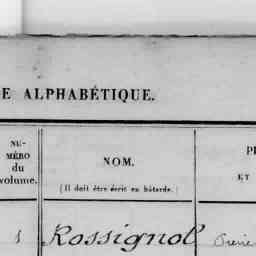 E ALPHABÉTIQUE.
NU-
MÉRO
du
volume.
NOM.
(Il doit être écrit en bâtarde.)
ET
Rossignol